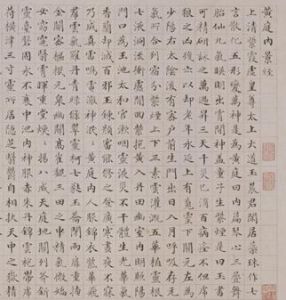 黃庭內景經
上清紫霞虛皇尊太上大道玉晨君閒居蕊珠作七
言散化五形變萬神是為黃庭曰內篇琴心三疊舞
胎仙九氣映明出霄間神蓋童子生紫煙是曰玉書
可精研詠之萬過昇三天千災已消百病痊不憚虎
狼之凶殘亦以卻老年永延上有魂靈下關元左為
少陽右太陰後有密戶前生門出日入月呼吸存元
氣所合列宿分紫煙上下三素雲灌溉五華植靈根
七液洞流衝廬間迴紫抱黃入丹田幽室內明照陽
門口為玉池太和官漱咽靈液災不干體生光華氣
香蘭卻滅百邪玉鍊顏審能修之登廣寒晝夜不寐
乃成真雷鳴電激神泯泯黃庭內人服錦衣紫華飛
帬雲氣羅丹青綠條翠靈柯七蕤玉籥閉兩扉重扇
金關密樞機玄泉幽闕高崔巍三田之中精氣微嬌
女窈窕翳霄暉重堂煥煥揚八威天庭地關列斧斤
靈臺盤固永不衰中池內神服赤珠丹錦雲袍帶虎
符橫津三寸靈所居隱芝翳鬱自相扶天中之嶽精